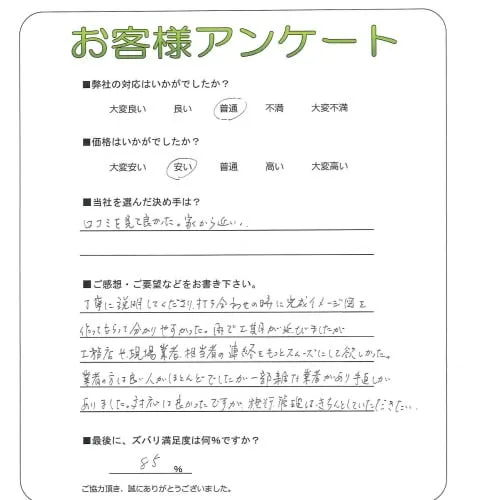 お客様アンケート
■弊社の対応はいかがでしたか？
大変良い 良い 普通 不満 大変不満
■価格はいかがでしたか？
大変安い 安い 普通 高い 大変高い
■当社を選んだ決め手は？
口コミを見て良かった。家から近い。
■ご感想・ご要望などをお書き下さい。
丁寧に説明してくださり、打ち合わせの時に完成イメージ図を
作ってもらって分かりやすかった。雨で工期が延びましたが
工務店や、現場業者、担当者の連絡をもっとスムーズにして欲しかった。
業者の方は良い人がほとんどでしたが一部雑な業者があり手直しが
ありました。対応は良かったですが、施行管理は、きちんとしていただきたい。
■最後に、ズバリ満足度は何％ですか？
85 %
ご協力頂き、誠にありがとうございました。